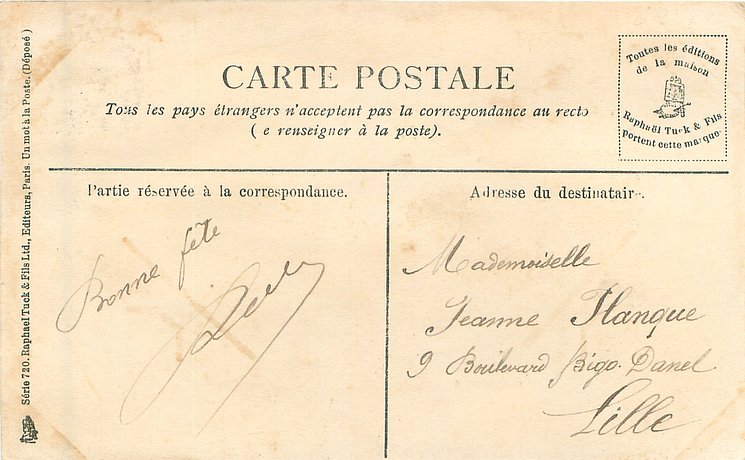 CARTE POSTALE
Tous les pays étrangers n'acceptent pas la correspondance au recto
( e renseigner à la poste).
Toutes les éditions
de la maison
Raphaël Tuck & Fils
portent cette marque
Série 720. Raphael Tuck & Fils Ltd., Editeurs, Paris. Un mot à la Poste. (Déposé)
Partie réservée à la correspondance.
Bonne fête
Adresse du destinataire.
Mademoiselle
Jeanne Flanque
9 Boulevard Bigo. Danel
Lille